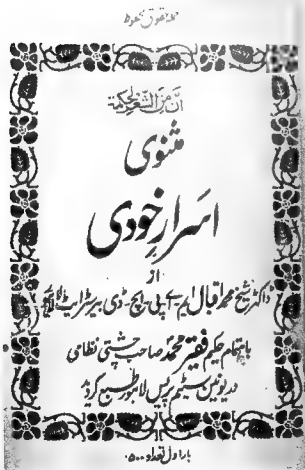 جملہ حقوق محفوظ
اِنَّ مِنَ الشِّعْرِ لَحِكْمَةً
مثنوی
اسرارِ خودی
از
ڈاکٹر شیخ محمد اقبال ایم-اے-پی-ایچ-ڈی-بیرسٹر ایٹ لا لاہور
باہتمام حکیم فقیر محمد صاحب چشتی نظامی
در یونین سٹیم پریس لاہور طبع گردید
بار اول تعداد ۵۰۰